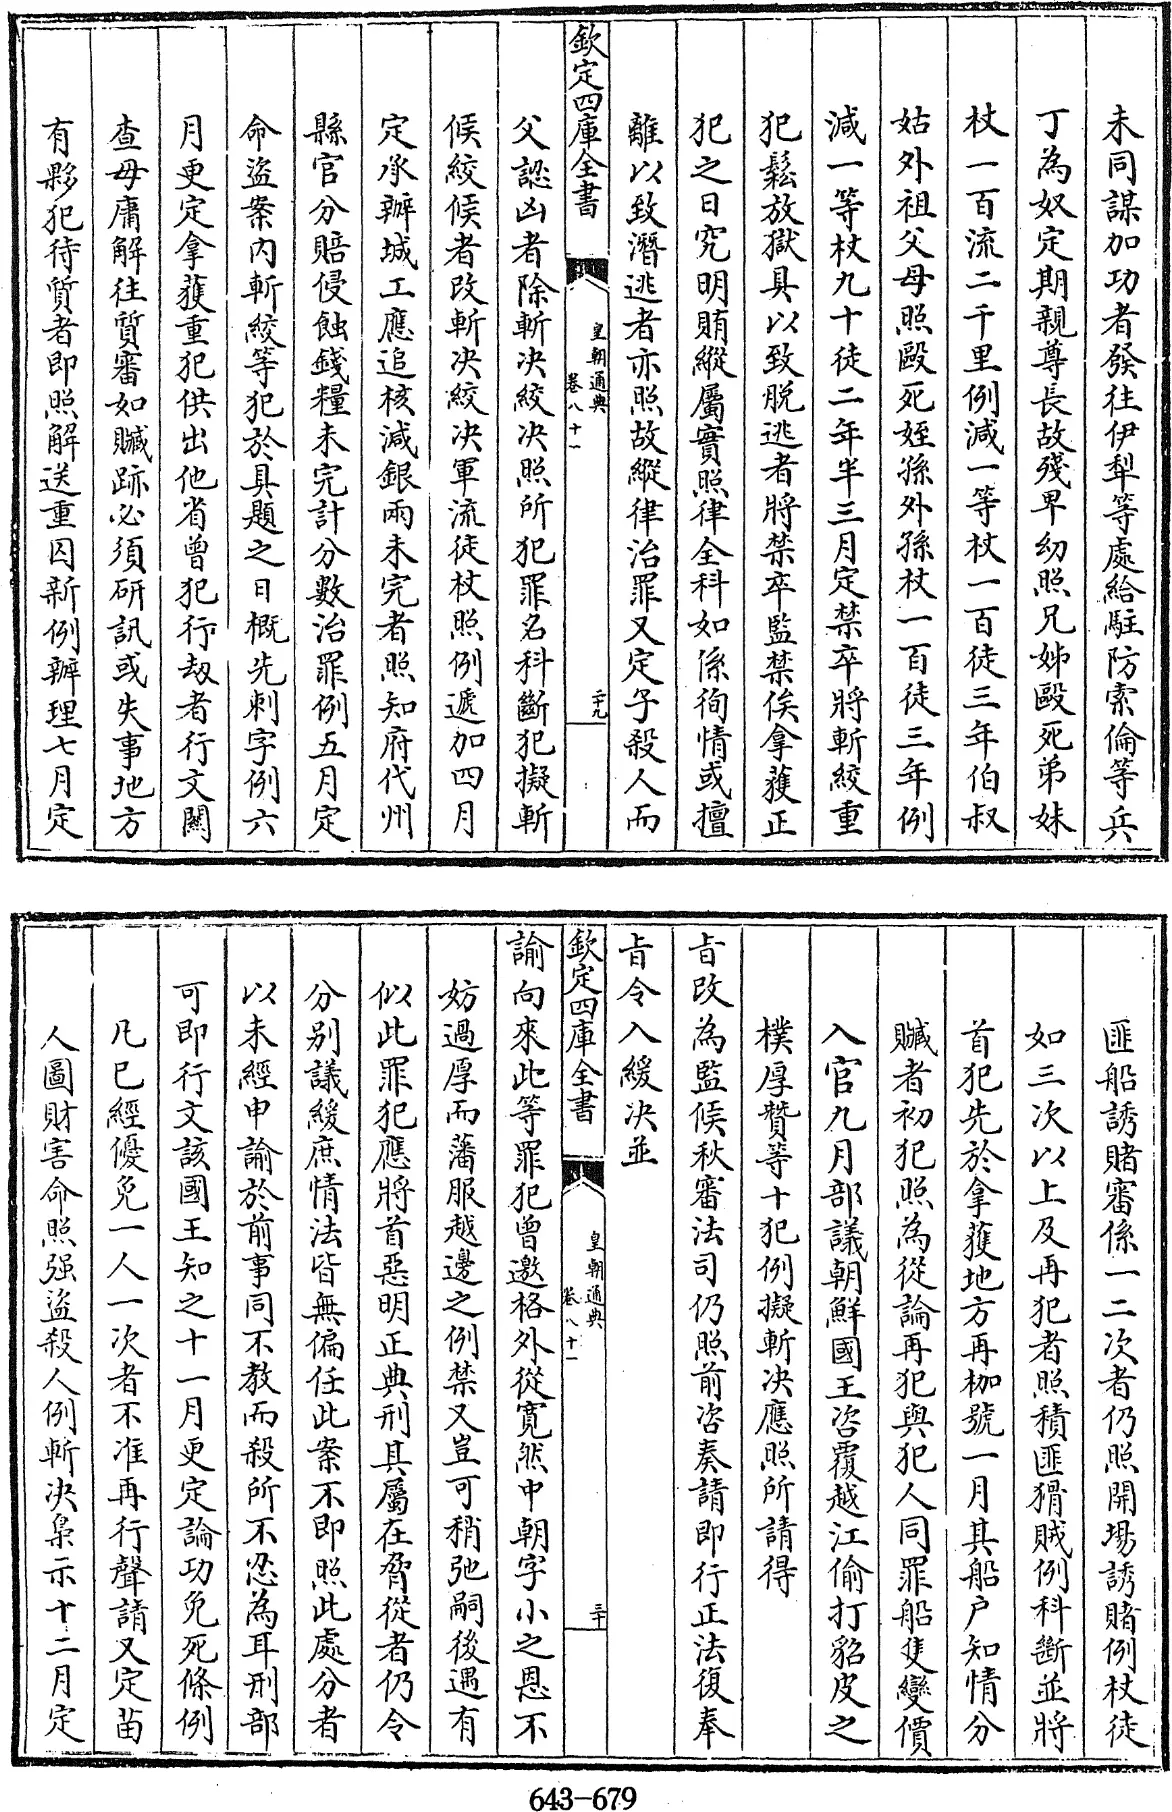 未同謀加功者發往伊犁等處給駐防索倫等兵
丁為奴定期親尊長故殘卑幼照兄姊毆死弟妹
杖一百流二千里例減一等杖一百徒三年伯叔
姑外祖父母照毆死姪孫外孫杖一百徒三年例
減一等杖九十徒二年半三月定禁卒將斬絞重
犯鬆放獄具以致脫逃者將禁卒監禁俟拿獲正
犯之日究明賄縱屬實照律全科如係徇情或擅
離以致潛逃者亦照故縱律治罪又定子殺人而
欽定四庫全書
皇朝通典
卷八十一
二十九
父認凶者除斬决絞决照所犯罪名科斷犯擬斬
候絞候者改斬决絞决軍流徒杖照例遞加四月
定承辦城工應追核減銀兩未完者照知府代州
縣官分賠侵蝕錢糧未完計分數治罪例五月定
命盜案内斬絞等犯於具題之日概先刺字例六
月更定拿獲重犯供出他省曾犯行刼者行文關
查毋庸解往質審如贓跡必須研訊或失事地方
有夥犯待質者即照解送重囚新例辦理七月定
匪船誘賭審係一二次者仍照開場誘賭例杖徒
如三次以上及再犯者照積匪猾賊例科斷並將
首犯先於拿獲地方再枷號一月其船户知情分
贓者初犯照為從論再犯與犯人同罪船隻變價
入官九月部議朝鮮國王咨覆越江偷打貂皮之
樸厚贊等十犯例擬斬决應照所請得
旨改為監候秋審法司仍照前咨奏請即行正法復奉
旨令入緩决並
欽定四庫全書
皇朝通典
卷八十一
三十
諭向來此等罪犯曾邀格外從寬然中朝字小之恩不
妨過厚而藩服越邊之例禁又豈可稍弛嗣後遇有
似此罪犯應將首惡明正典刑其屬在脅從者仍令
分别議緩庶情法皆無偏任此案不即照此處分者
以未經申諭於前事同不教而殺所不忍為耳刑部
可即行文該國王知之十一月更定論功免死條例
凡已經優免一人一次者不准再行聲請又定苗
人圖財害命照强盜殺人例斬决梟示十二月定
643-679